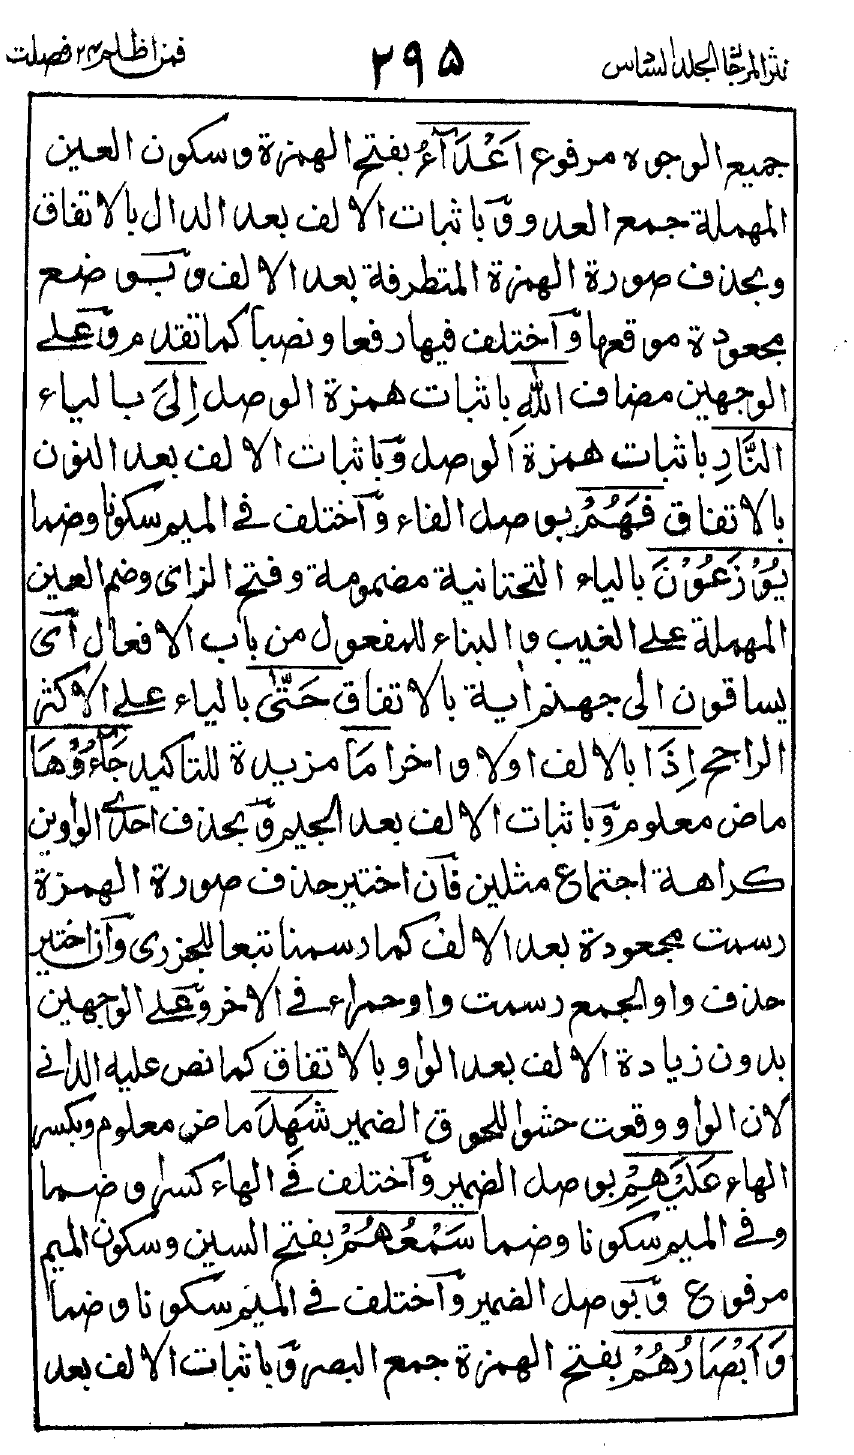 نثر المرجان المجلد السادس ٢٩٥ فمن اظلم ٢٤ فصلت
جميع الوجوه مرفوع اَعْدَآءُ بفتح الهمزة وسكون العين
المهملة جمع العدو وَباثبات الالف بعد الدال بالاتفاق
وبحذف صورة الهمزة المتطرفة بعد الالف وَبوضع
مجعودة موقعها وَاختلف فيها رفعا ونصبا كما تقدم وَعلى
الوجهين مضاف اللّٰهِ باثبات همزة الوصل اِلَى بالياء
النَّارِ باثبات همزة الوصل وَباثبات الالف بعد النون
بالاتفاق فَهُمْ بوصل الفاء وَاختلف في الميم سكونا وضما
يُوْزَعُوْنَ بالياء التحتانية مضمومة وفتح الزاى وضم العين
المهملة على الغيب والبناء للمفعول من باب الافعال اَى
يساقون الى جهنم اٰية بالاتفاق حَتّٰى بالياء على الاكثر
الراجح اِذَا بالالف اولا واخرا مَا مزيدة للتاكيد جَآءُوْهَا
ماض معلوم وَباثبات الالف بعد الجيم وَبحذف احدى الواوين
كراهة اجتماع مثلين فَان اختير حذف صورة الهمزة
رسمت مجعودة بعد الالف كما رسمنا تبعا للجزرى وَان اختير
حذف واو الجمع رسمت واو حمراء في الاخر وَعلى الوجهين
بدون زيادة الالف بعد الواو بالاتفاق كما نص عليه الدانى
لان الواو وقعت حشوا للحوق الضمير شَهِدَ ماض معلوم وبكسر
الهاء عَلَيْهِمْ بوصل الضمير وَاختلف في الهاء كسرا وضما
وفي الميم سكونا وضما سَمْعُهُمْ بفتح السين وسكون الميم
مرفوع وَبوصل الضمير وَاختلف في الميم سكونا وضما
وَاَبْصَارُهُمْ بفتح الهمزة جمع البصر وَباثبات الالف بعد